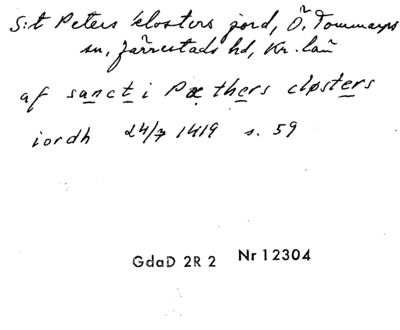 S:t Peters klosters jord, Ö. Tommarps
sn, Järrestads hd, Kr. län
af sancti Pæthers cløsters
iordh 24/7 1419 s. 59
GdaD 2R 2 Nr 12304